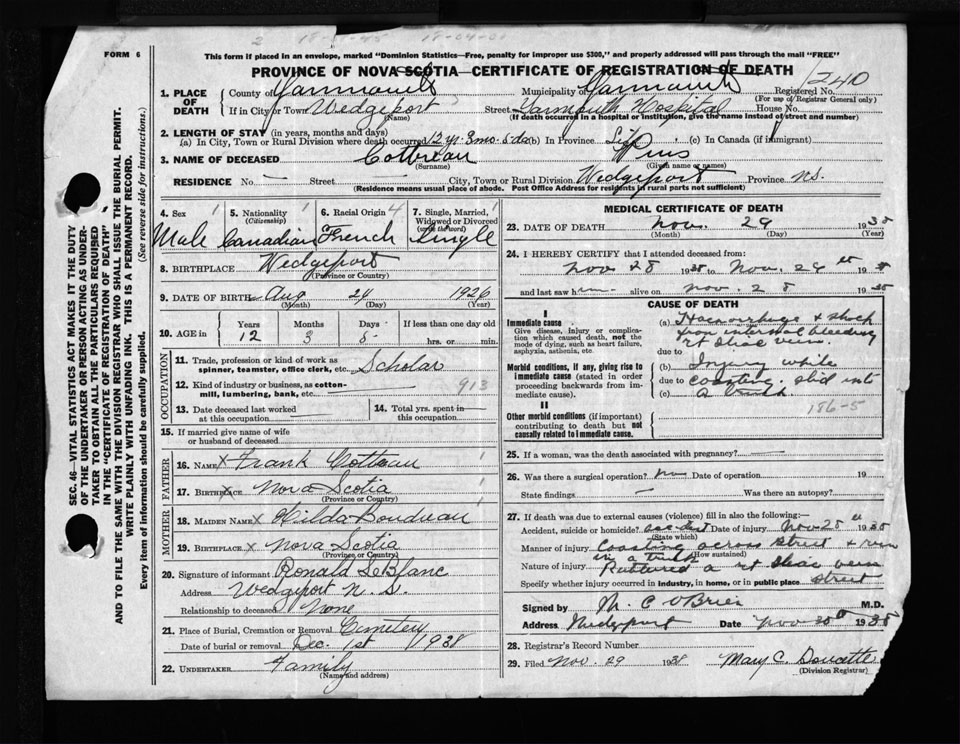 2 18-01-45 18-04-01
FORM 6
This form if placed in an envelope, marked "Dominion Statistics—Free, penalty for improper use $300," and properly addressed will pass through the mail "FREE"
PROVINCE OF NOVA SCOTIA—CERTIFICATE OF REGISTRATION OF DEATH
1240
1. PLACE OF DEATH
County of Yarmouth Municipality of Yarmouth Registered No.
(For use of Registrar General only)
If in City or Town Wedgeport Street Yarmouth Hospital House No.
(Name) (If death occurred in a hospital or institution, give the name instead of street and number)
2. LENGTH OF STAY (in years, months and days)
(a) In City, Town or Rural Division where death occurred 12 yr. 3 mo. 5 ds (b) In Province Life (c) In Canada (if immigrant)
3. NAME OF DECEASED Cottreau Pius
(Surname) (Given name or names)
RESIDENCE No. — Street City, Town or Rural Division Wedgeport Province N.S.
(Residence means usual place of abode. Post Office Address for residents in rural parts not sufficient)
4. Sex 1
Male
5. Nationality 1
(Citizenship)
Canadian
6. Racial Origin 4
French
7. Single, Married, Widowed or Divorced
(write the word)
Single
8. BIRTHPLACE Wedgeport
(Province or Country)
9. DATE OF BIRTH Aug 24 1926
(Month) (Day) (Year)
10. AGE in
Years Months Days If less than one day
12 3 5 hrs. or min.
OCCUPATION
11. Trade, profession or kind of work as spinner, teamster, office clerk, etc. Scholar
12. Kind of industry or business, as cotton-mill, lumbering, bank, etc. — 913
13. Date deceased last worked at this occupation —
14. Total yrs. spent in this occupation —
15. If married give name of wife or husband of deceased
FATHER
16. NAME x Frank Cotteau 1
17. BIRTHPLACE x Nova Scotia 1
(Province or Country)
MOTHER
18. MAIDEN NAME x Hilda Boudreau
19. BIRTHPLACE x Nova Scotia 1
(Province or Country)
20. Signature of informant Ronald LeBlanc
Address Wedgeport N.S.
Relationship to deceased None
21. Place of Burial, Cremation or Removal Cemetery
Date of burial or removal Dec. 1st 1938
22. UNDERTAKER Family
(Name and address)
MEDICAL CERTIFICATE OF DEATH
23. DATE OF DEATH Nov. 29 1938
(Month) (Day) (Year)
24. I HEREBY CERTIFY that I attended deceased from:
Nov 28 1938 to Nov. 29th 1938
and last saw him alive on Nov. 28 1938
CAUSE OF DEATH
I
Immediate cause
Give disease, injury or complication which caused death, not the mode of dying, such as heart failure, asphyxia, asthenia, etc.
(a) Haemorrhage & shock
from internal bleeding
rt iliac vein.
due to
Morbid conditions, if any, giving rise to immediate cause (stated in order proceeding backwards from immediate cause).
(b) Injury while
due to coasting. slid into
(c) a truck
186-5
II
Other morbid conditions (if important) contributing to death but not causally related to immediate cause.
25. If a woman, was the death associated with pregnancy? —
26. Was there a surgical operation? no Date of operation 19
State findings — Was there an autopsy?
27. If death was due to external causes (violence) fill in also the following:—
Accident, suicide or homicide? accident Date of injury Nov 28 1938
(State which)
Manner of injury Coasting across street & run
in a truck (How sustained)
Nature of injury Ruptured a rt iliac vein
Specify whether injury occurred in industry, in home, or in public place street
Signed by M. C. O'Brien M.D.
Address Wedgeport Date Nov 30th 1938
28. Registrar's Record Number
29. Filed Nov. 29 1938 Mary C. Doucette
(Division Registrar)
SEC. 46—VITAL STATISTICS ACT MAKES IT THE DUTY
OF THE UNDERTAKER OR PERSON ACTING AS UNDER-
TAKER TO OBTAIN ALL THE PARTICULARS REQUIRED
IN THE "CERTIFICATE OF REGISTRATION OF DEATH"
AND TO FILE THE SAME WITH THE DIVISION REGISTRAR WHO SHALL ISSUE THE BURIAL PERMIT.
WRITE PLAINLY WITH UNFADING INK. THIS IS A PERMANENT RECORD.
Every item of information should be carefully supplied. (See reverse side for instructions.)